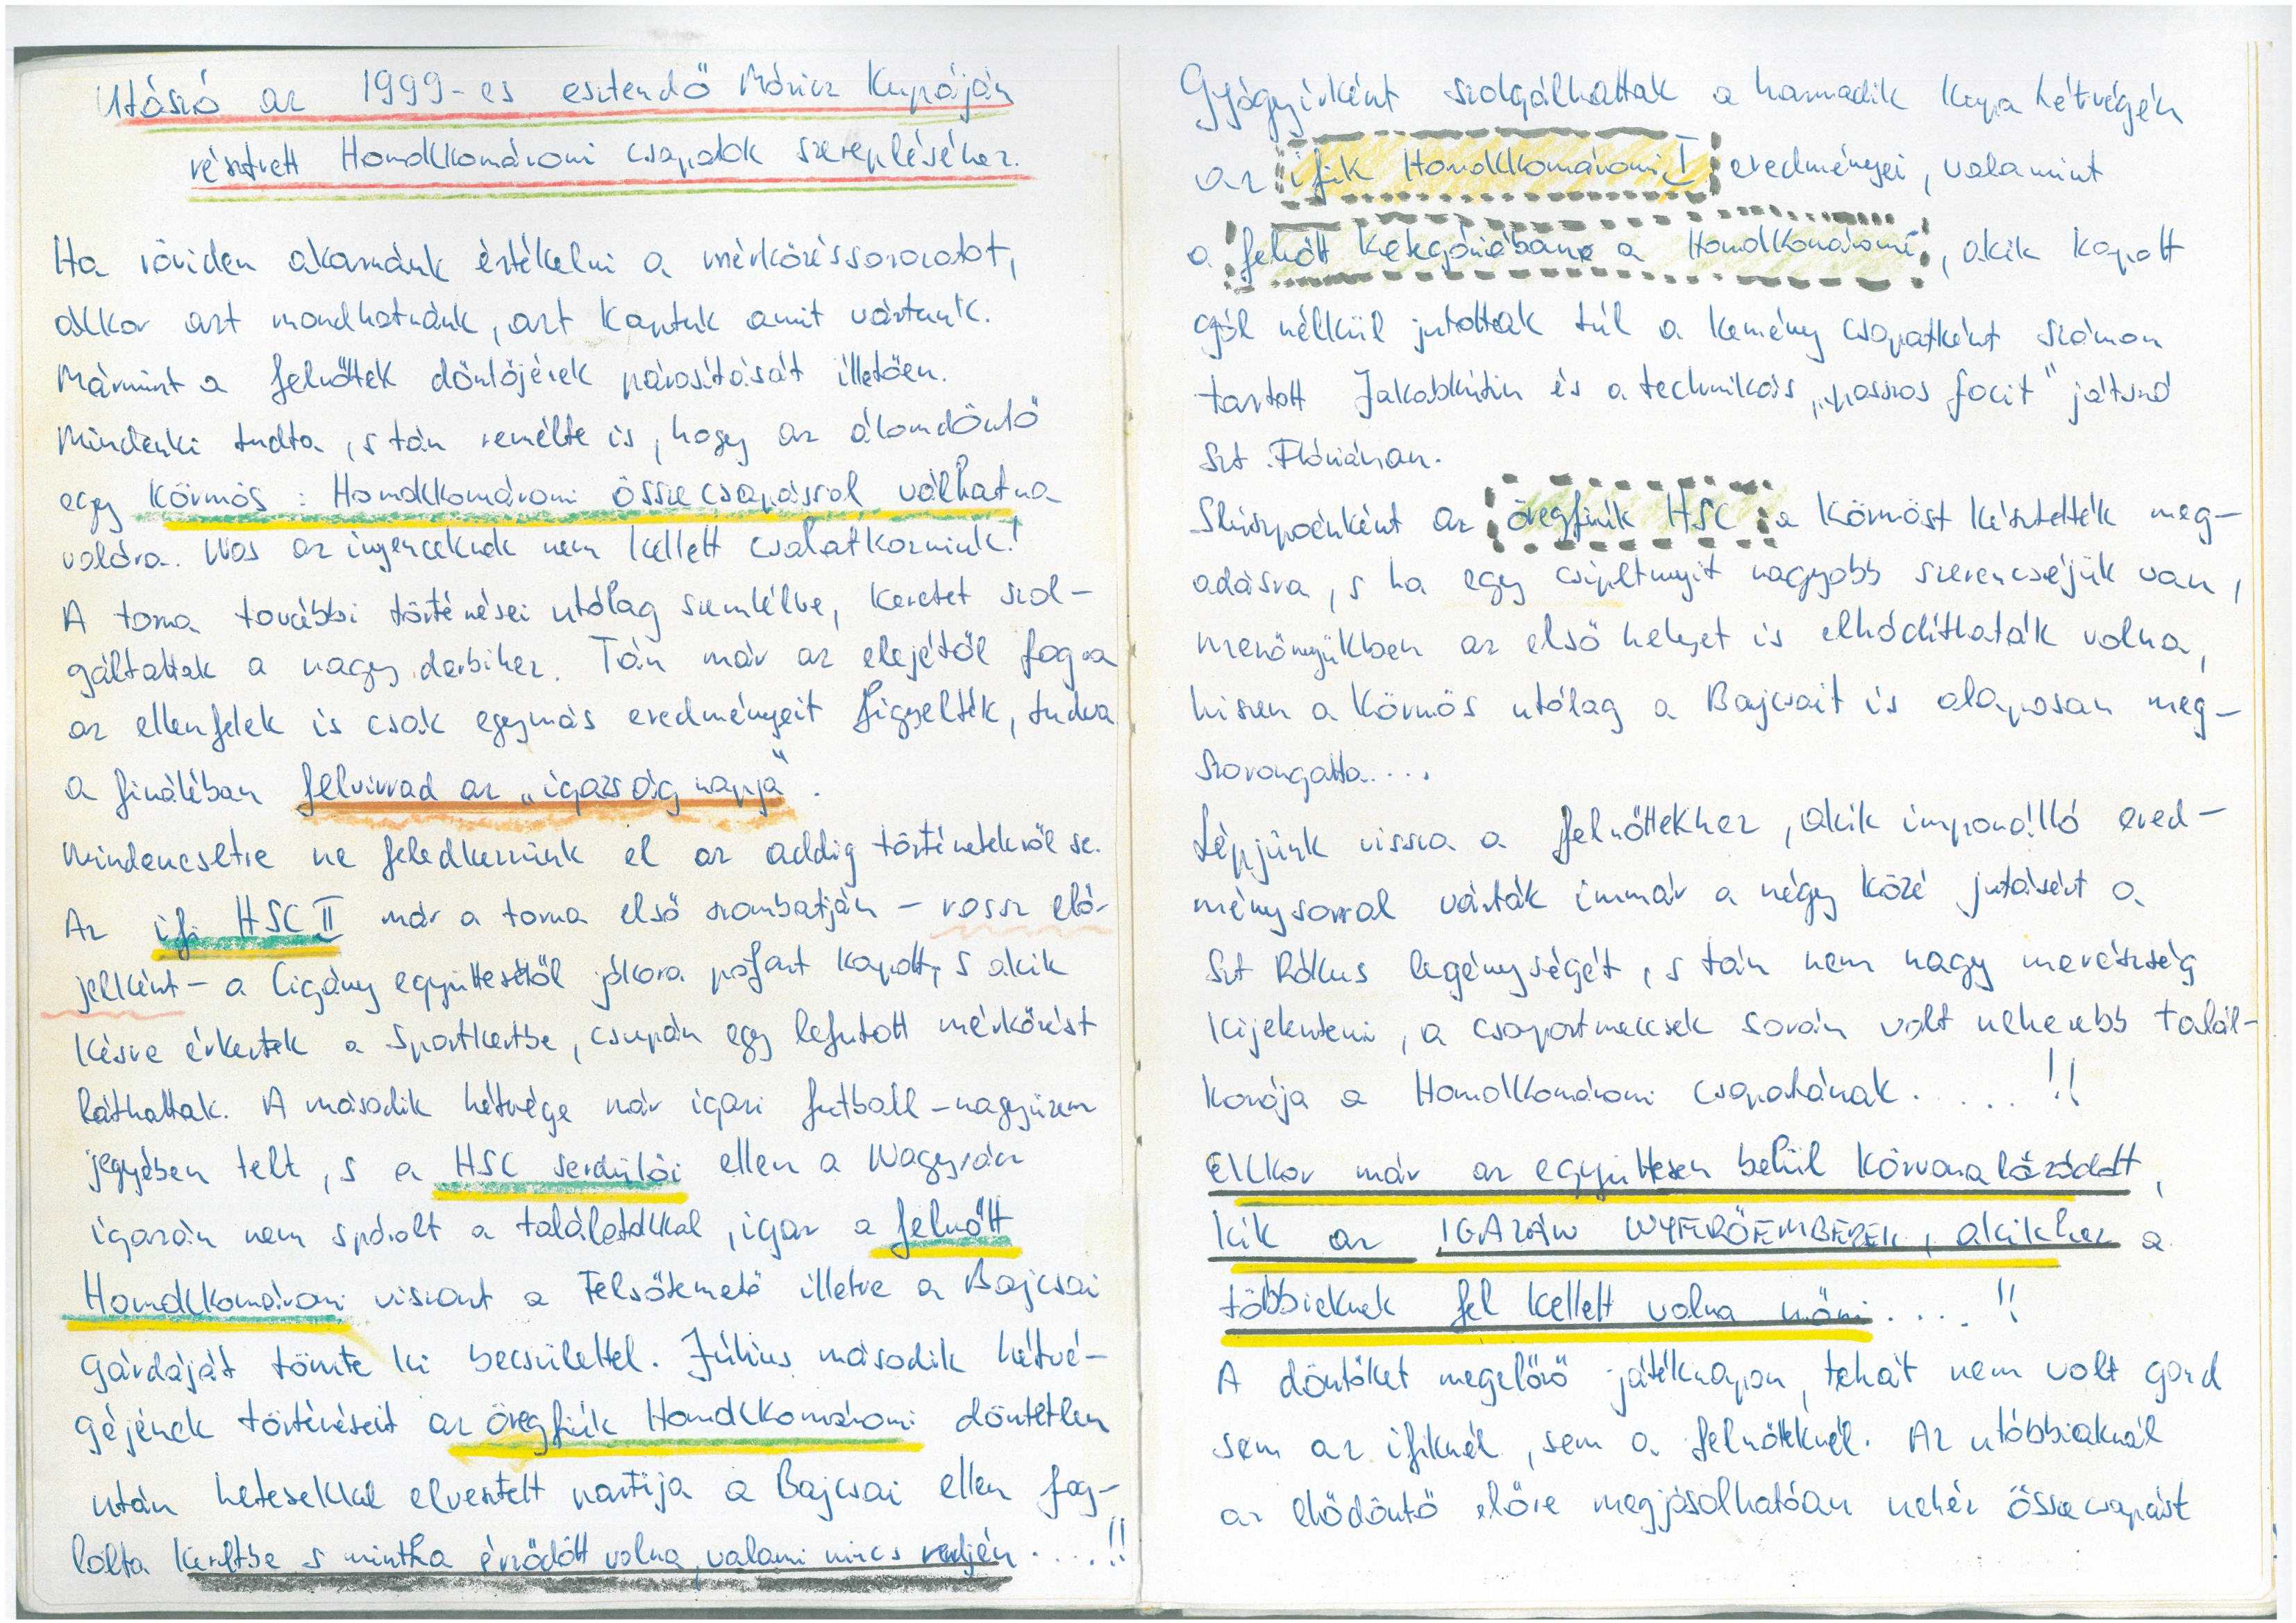 Utószó az 1999-es esztendő Móricz Kupáján
résztvett Homokkomáromi csapatok szerepléséhez.
Ha röviden akarnánk értékelni a mérkőzéssorozatot,
akkor azt mondhatnánk, azt kaptuk amit vártunk.
Mármint a felnőttek döntőjének párosítását illetően.
Mindenki tudta, s tán remélte is, hogy az álomdöntő
egy Körmös : Homokkomáromi összecsapással válhatna
valóra. Nos az ínyenceknek nem kellett csalatkozniuk!
A torna további történései utólag szemlélve, keretet szol-
gáltattak a nagy derbihez. Tán már az elejétől fogva
az ellenfelek is csak egymás eredményeit figyelték, tudva
a fináléban felvirrad az „igazság napja".
Mindenesetre ne feledkezzünk el az addig történtekről se.
Az ifi HSC II már a torna első szombatján - rossz elő-
jelként - a Cigány együttesétől jókora pofont kapott, s akik
késve érkeztek a Sportkertbe, csupán egy lefutott mérkőzést
láthattak. A második hétvége már igazi futball-nagyüzem
jegyében telt, s a HSC serdülői ellen a Nagyrác
igazán nem spórolt a találatokkal, igaz a felnőtt
Homokkomáromi viszont a Felsőtemető illetve a Bajcsai
gárdáját tömte ki becsülettel. Július második hétvé-
géjének történéseit az öregfiúk Homokkomáromi döntetlen
után hetesekkel elvesztett partija a Bajcsai ellen fog-
lalta keretbe s mintha érződött volna, valami nincs rendjén....!!
Gyógyírként szolgálhattak a harmadik kupa hétvégén
az ifik Homokkomáromi I eredményei, valamint
a felnőtt kategóriában a Homokkomáromi, akik kapott
gól nélkül jutottak túl a kemény csapatként számon
tartott Jakabkútin és a technikás „passzos focit" játszó
Szt. Flóriánon.
Slusszpoénként az öregfiúk HSC a Körmöst késztették meg-
adásra, s ha egy csipetnyit nagyobb szerencséjük van,
menőnyükben az első helyet is elhódíthatták volna,
hiszen a Körmös utólag a Bajcsait is alaposan meg-
szorongatta....
Lépjünk vissza a felnőttekhez, akik imponálló ered-
ménysorral várták immár a négy közé jutásért a
Szt Rókus legénységét, s tán nem nagy merészség
kijelenteni, a csoportmeccsek során volt nehezebb talál-
kozója a Homokkomáromi csapatának.....!!
Ekkor már az együttesen belül körvonalazódott,
kik az IGAZÁN NYERŐEMBEREK, akikhez a
többieknek fel kellett volna nőni....!!
A döntőket megelőző játéknapon, tehát nem volt gond
sem az ifiknél, sem a felnőtteknél. Az utóbbiaknál
az elődöntő előre megjósolhatóan nehéz összecsapást